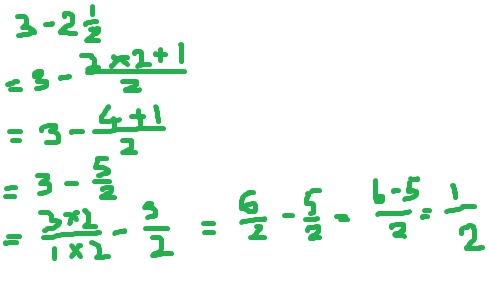 3 - 2 1/2
= 3 - (2 × 2 + 1)/2
= 3 - (4 + 1)/2
= 3 - 5/2
= (3 × 2)/(1 × 2) - 5/2 = 6/2 - 5/2 = (6 - 5)/2 = 1/2